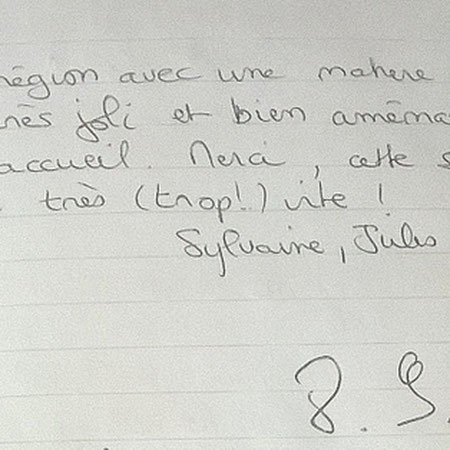 région avec une matière
très joli et bien aména
accueil. Merci, cette s
très (trop!) vite !
Sylvaine, Jules